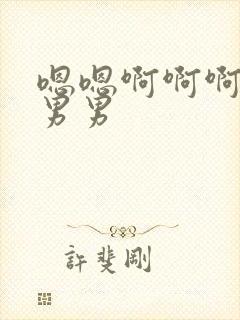 嗯嗯啊啊啊
男男
許斐剛